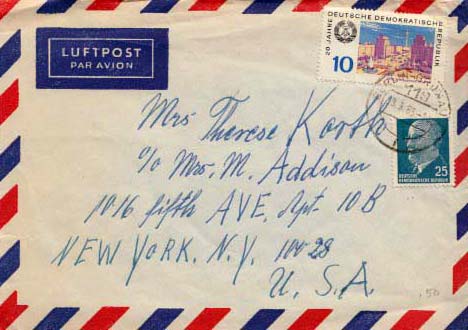 LUFTPOST
PAR AVION
20 JAHRE DEUTSCHE DEMOKRATISCHE REPUBLIK
10
25
DEUTSCHE
DEMOKRATISCHE REPUBLIK
Mrs Therese Korth
c/o Mrs. M. Addison
1016 fifth AVE, Apt. 10B
NEW YORK. N.Y. 100-28
U. S. A.
.50